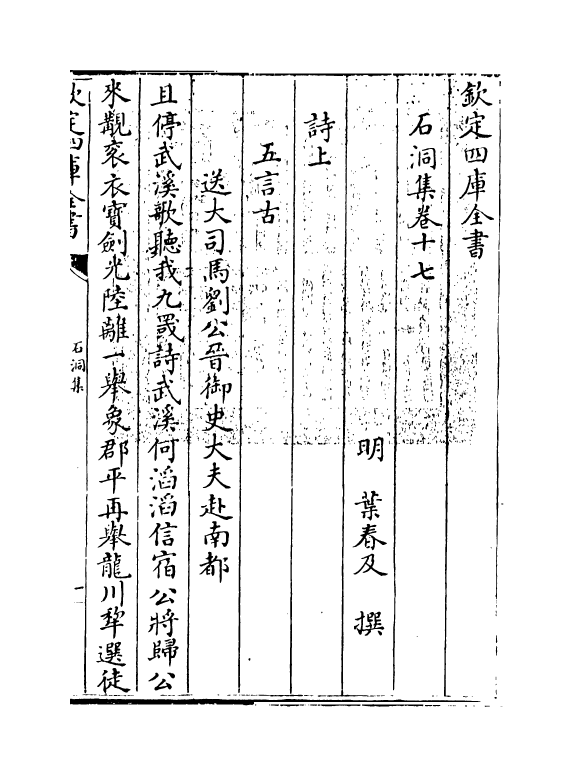 欽定四庫全書
石洞集卷十七
明 葉春及 撰
詩上
五言古
送大司馬劉公晉御史大夫赴南都
且停武溪歌聽我九罭詩武溪何滔滔信宿公將歸公
來覯衮衣寶劍光陸離一舉象郡平再舉龍川犂選徒
欽定四庫全書
石洞集
一